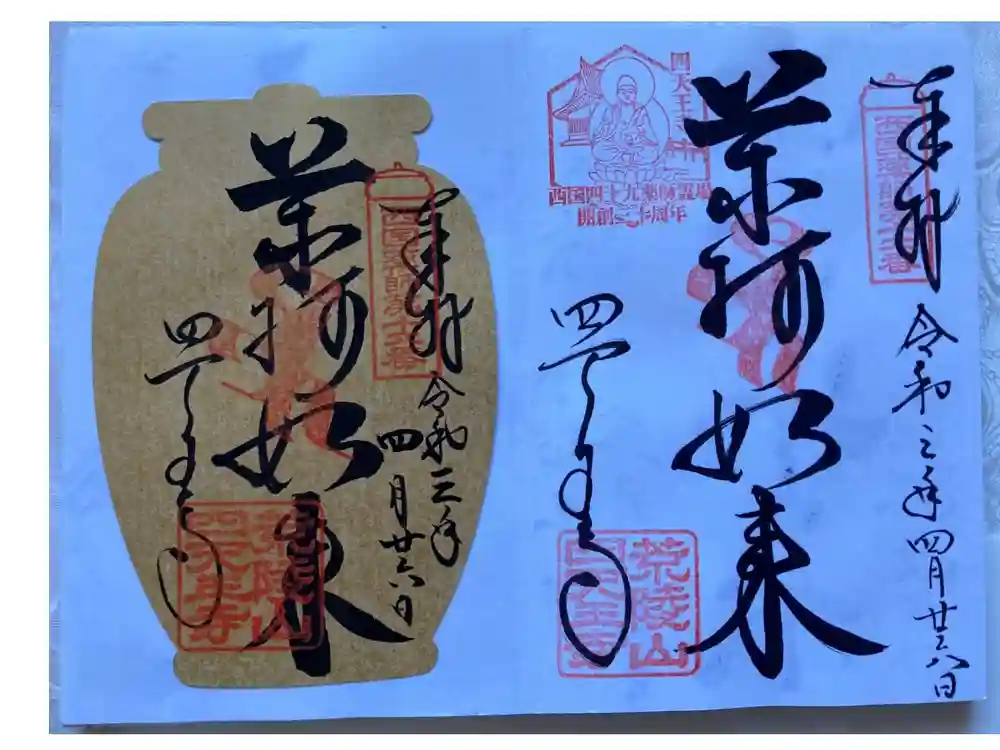 奉拝
西国薬師第十六番
令和三年四月廿六日
薬師如来
四天王寺
西国四十九薬師霊場
開創三十周年
四天王寺
荒陵山
四天王寺
奉拝
西国薬師第十六番
令和三年
四月廿六日
薬師如来
四天王寺
荒陵山
四天王寺